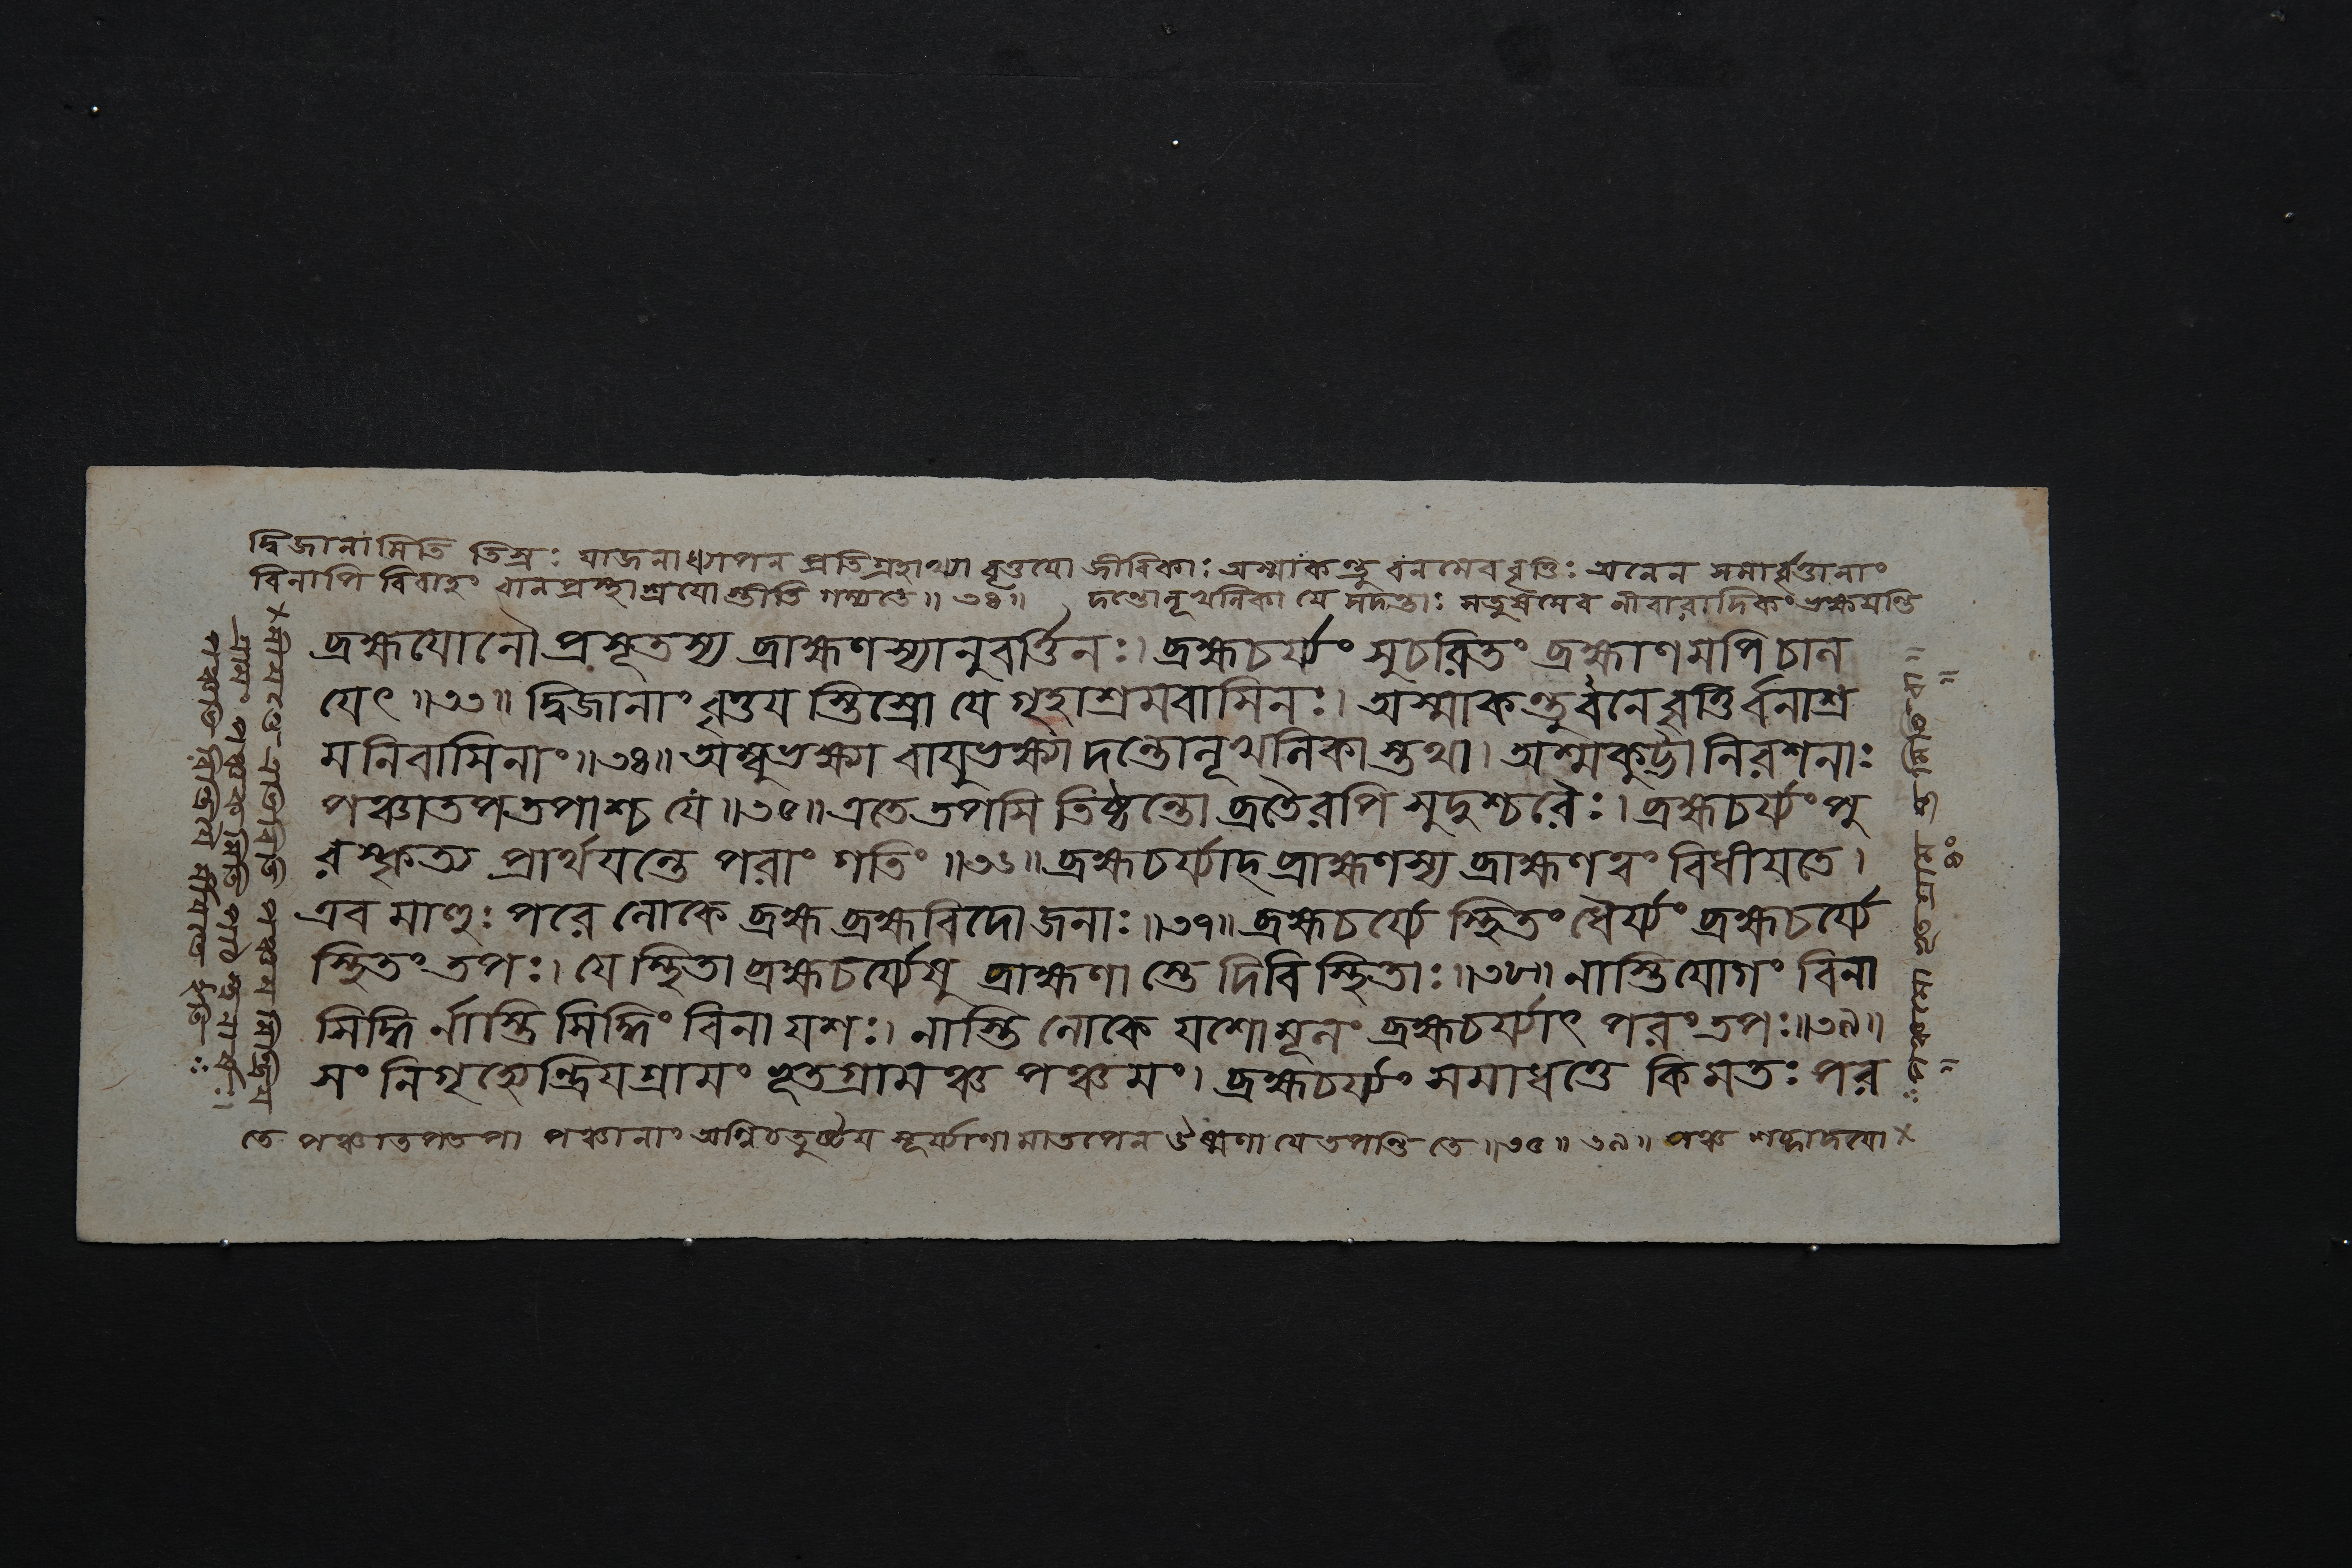 দ্বিজানামিতি তিস্রঃ যাজনাধ্যাপন প্রতিগ্রহাখ্যা বৃত্তযো জীবিকাঃ অস্মাকন্তু বনমেব বৃত্তিঃ অনেন
বিনাপি বিবাহং বানপ্রস্থাশ্রযোস্তীতি গম্যতে॥ ৩৪॥ দন্তোলূখলিকা যে সদন্তাঃ সতুষমেব নীবারাদিকং ভক্ষযন্তি
ব্রহ্মযোনৌ প্রসূতস্য ব্রাহ্মণস্যানুবর্ত্তিনঃ। ব্রহ্মচর্য্যং সুচরিতং ব্রহ্মাণমপি চাল
যেৎ॥৩৩॥ দ্বিজানাং বৃত্তয স্তিস্রো যে গৃহাশ্রমবাসিনঃ। অস্মাকন্তু বনে বৃত্তির্বনাশ্র
মনিবাসিনাং॥৩৪॥ অম্বুভক্ষা বাযুভক্ষা দন্তোলূখলিকা স্তথা। অশ্মকুট্টা নিরশনাঃ
পঞ্চাতপতপাশ্চ যে॥৩৫॥ এতে তপসি তিষ্ঠন্তো ব্রতৈরপি সুদুশ্চরৈঃ। ব্রহ্মচর্য্যং পু
রস্কৃত্য প্রার্থযন্তে পরাং গতিং॥৩৬॥ ব্রহ্মচর্য্যাদ্ব্রাহ্মণস্য ব্রাহ্মণত্বং বিধীযতে।
এব মাহুঃ পরে লোকে ব্রহ্ম ব্রহ্মবিদো জনাঃ॥৩৭॥ ব্রহ্মচর্য্যে স্থিতং ধৈর্য্যং ব্রহ্মচর্য্যে
স্থিতং তপঃ। যে স্থিতা ব্রহ্মচর্য্যেষু ব্রাহ্মণা স্তে দিবি স্থিতাঃ॥৩৮॥ নাস্তি যোগং বিনা
সিদ্ধি র্নাস্তি সিদ্ধিং বিনা যশঃ। নাস্তি লোকে যশোমূলং ব্রহ্মচর্য্যাৎ পরং তপঃ॥৩৯॥
সং নিগৃহ্যেন্দ্রিযগ্রামং ভূতগ্রামঞ্চ পঞ্চমং। ব্রহ্মচর্য্যং সমাধত্তে কিমতঃ পর
তে পঞ্চাতপতপা পঞ্চানাং অগ্নিচতুষ্টয সূর্য্যাণামাতপেন ঔষ্মণা যে তপন্তি তে॥৩৫॥ ৩৯॥ পঞ্চ শব্দাদযো